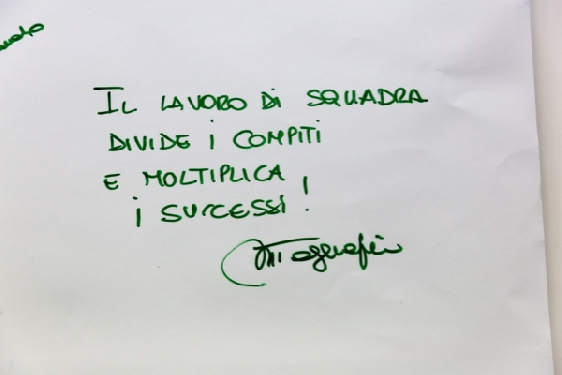 IL LAVORO DI SQUADRA
DIVIDE I COMPITI
E MOLTIPLICA
I SUCCESSI!